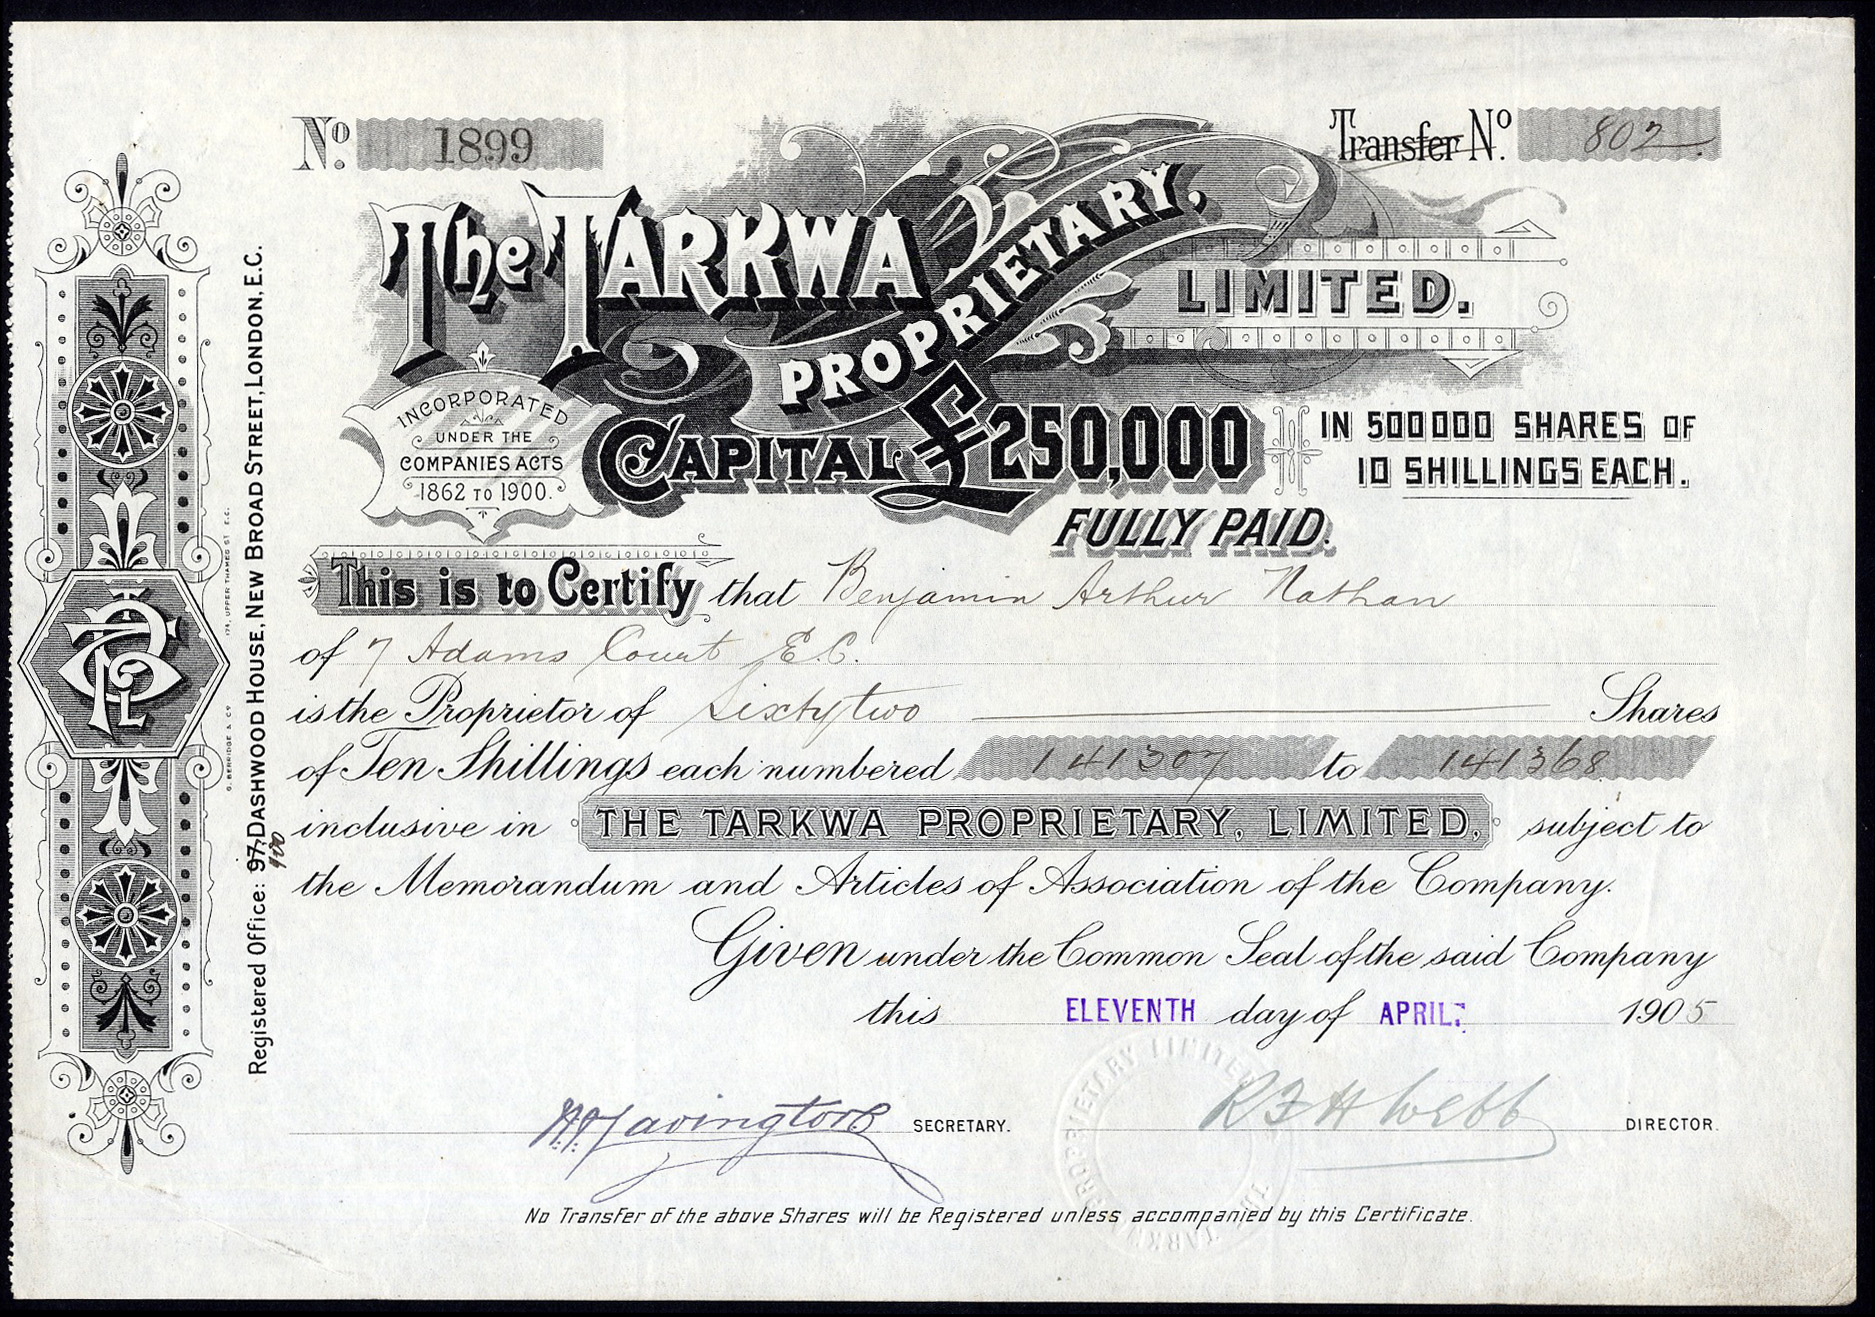 No. 1899
Transfer No. 802
The TARKWA PROPRIETARY, LIMITED.
INCORPORATED
UNDER THE
COMPANIES ACTS
1862 TO 1900.
CAPITAL £250,000
IN 500000 SHARES OF
10 SHILLINGS EACH.
FULLY PAID.
This is to Certify that Benjamin Arthur Nathan
of 7 Adams Court E.C.
is the Proprietor of Sixty two Shares
of Ten Shillings each numbered 141307 to 141368
inclusive in THE TARKWA PROPRIETARY, LIMITED, subject to
the Memorandum and Articles of Association of the Company.
Given under the Common Seal of the said Company
this ELEVENTH day of APRIL 1905
SECRETARY.
R F H Webb DIRECTOR.
No Transfer of the above Shares will be Registered unless accompanied by this Certificate.
Registered Office: 97, DASHWOOD HOUSE, NEW BROAD STREET, LONDON, E.C.
G. BERRIDGE & CO 174, UPPER THAMES ST E.C.